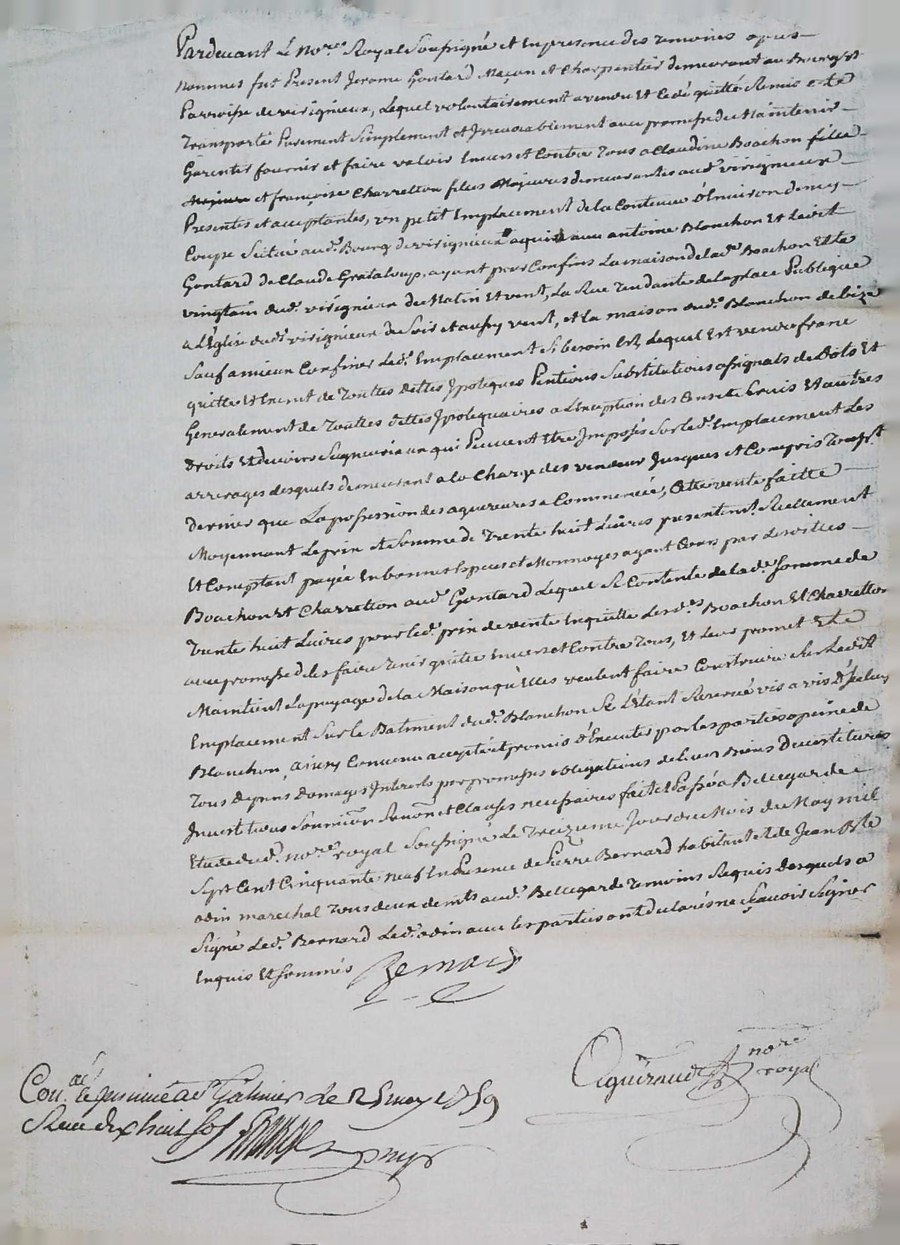 Pardevant le nore. Royal Soussigné et En presence des temoins apres
nommés fut Present Jerome Gontard Maçon et Charpentier demeurant au Bourg et
Parroisse de virigneux, Lequel volontairement a vendu Et cedé quitté Remis et
Transporté Purement Simplement et Irrevocablement avec promesse de Maintenir
Garentir fournir et faire valoir Envers et Contre Tous a Claudine Boachon fille
Majeure et françoise Charretton filles Majeures demeurantes aud. virigneux
Presentes et acceptantes, un petit Emplacement de la Contenue d'Environ demy
Coupe Scitué aud. Bourg de virigneux aquis avec antoine Blanchon Et Ledit
Gontard de Claude Grataloup, ayant pour Confins La maison de lad. Boachon Et le
vingtain dud. virigneux de Matin Et vent, La Rue Tendante de la place Publique
a L'Eglise dud. virigneux de Soir et aussy vent, et la maison dud. Blanchon de bize
Sauf a mieux Confiner Led. Emplacement Si besoin Est, Lequel Est vendu franc
quitte Et Exempt de Touttes dettes Ipoteques Pentions Substitutions assignats de Dots Et
Generalement de Touttes dettes Ipotequaires a L'Exception des Cens et Servis Et autres
Droits Et devoirs Seigneuriaux qui Peuvent Etre Imposés Sur Led. Emplacement Les
arrerages desquels demeurant a la Charge des vendeur Jusques et Compris
dernier que La possession des aquereures a Commencée, Cette vente faitte
Moyennant Le prix et Somme de Trente huit Livres presentemt. Reellement
Et Comptant payée En bonnes Especes et Monnoyes ayant Cours par Lesdittes
Boachon Et Charretton aud. Gontard Lequel Se Contente de lad. Somme de
Trente huit Livres pour led. prix de vente En quitte Lesdes. Boachon Et Charretton
avec promesse de les faire Tenir quittes Envers et Contre Tous, Et Leur promet Et
Maintient La puyage de la Maison qu'Elles veulent faire Construire Sur Ledit
Emplacement Sur le Batiment dud. Blanchon Se L'étant Reservé vis a vis
Blanchon, ainsy Convenu accepté et promis d'Executer par les parties a peine de
Tous depens Domages Interets par promesses obligations de Leurs Biens
Soumissions Renon. et Clauses necessaires fait et Passé a Bellegarde
Etude dud. nore. royal Soussigné Le Treizieme Jour du Mois de May mil
Sept Cent Cinquante neuf En Presence de Pierre Bernard habitant et de Jean Bte
odin marechal Tous deux demts. aud. Bellegarde Temoins Requis desquels a
Signé Led. Bernard Led. odin avec les parties ont declarés ne Sçavoir Signer
Enquis Et Sommés Bernard
nore.
royal
Con.lé a St Galmier le 25 may 1759
Recu dix huit sols